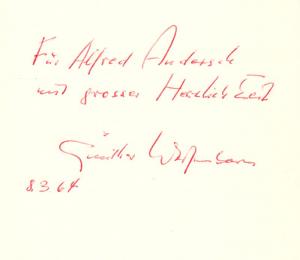 Für Alfred Andersch
mit grosser Herzlichkeit
Günther
8 3 64